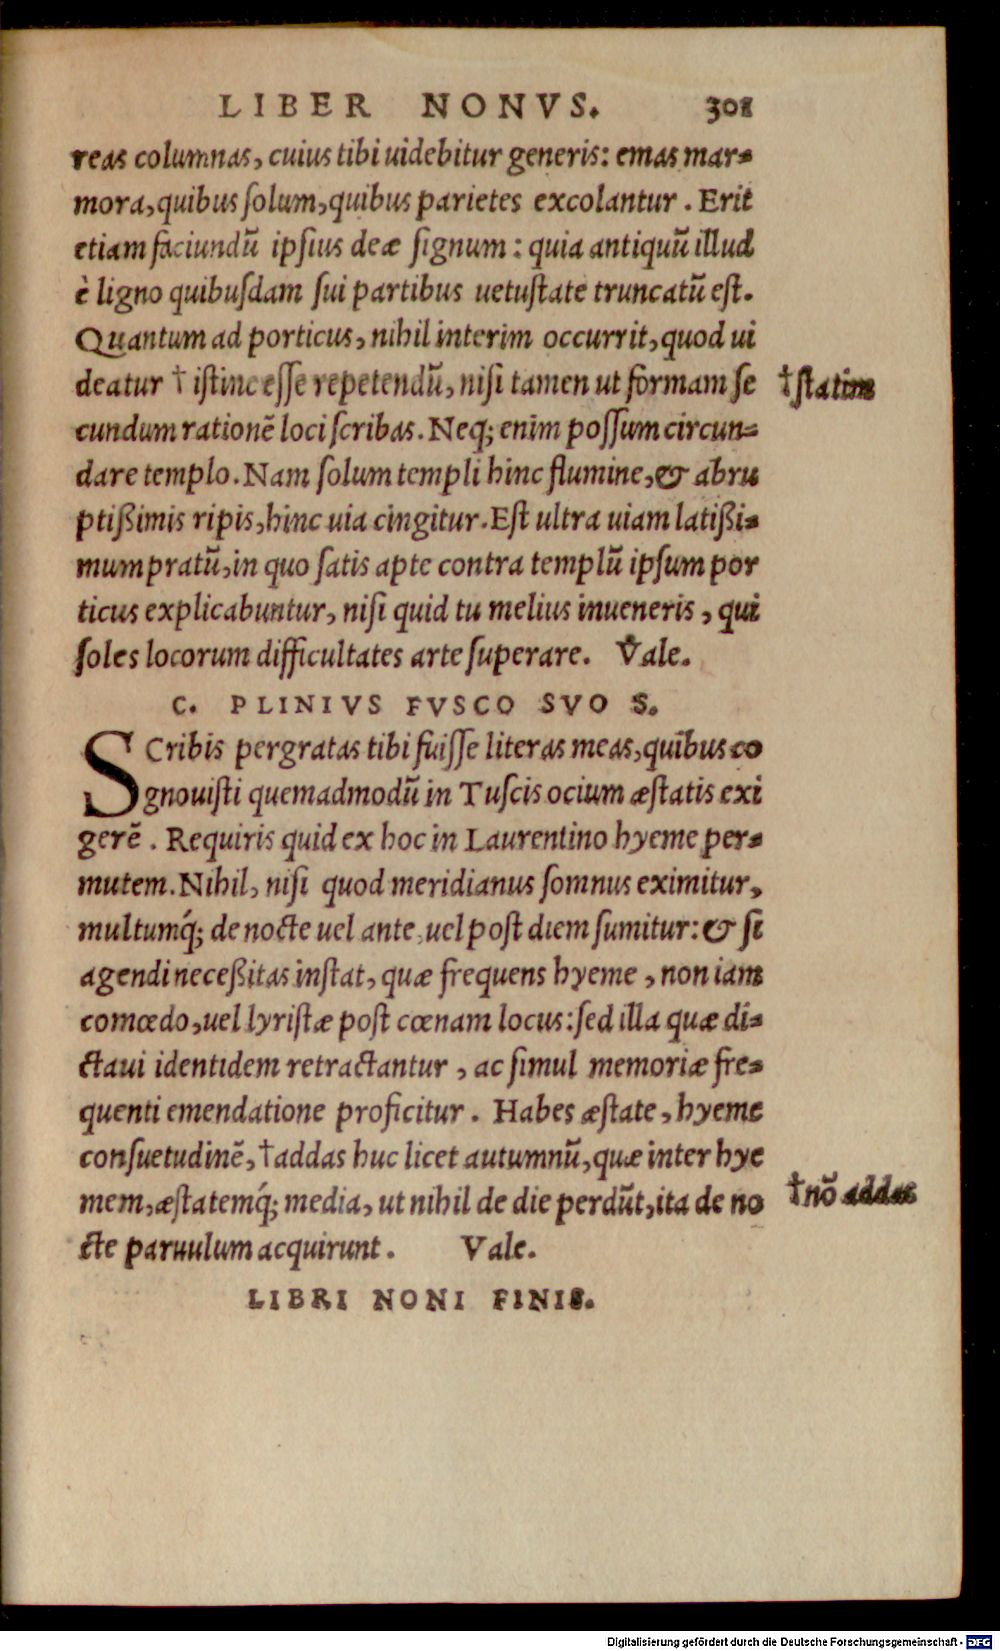 LIBER NONVS. 308
reas columnas, cuius tibi uidebitur generis: emas mar-
mora, quibus solum, quibus parietes excolantur. Erit
etiam faciundū ipsius deæ signum: quia antiquū illud
è ligno quibusdam sui partibus uetustate truncatū est.
Quantum ad porticus, nihil interim occurrit, quod ui
deatur † istinc esse repetendū, nisi tamen ut formam se †statim
cundum rationē loci scribas. Neq; enim possum circun-
dare templo. Nam solum templi hinc flumine, & abru
ptißimis ripis, hinc uia cingitur. Est ultra uiam latißi-
mum pratū, in quo satis apte contra templū ipsum por
ticus explicabuntur, nisi quid tu melius inueneris, qui
soles locorum difficultates arte superare. Vale.
C. PLINIVS FVSCO SVO S.
SCribis pergratas tibi fuisse literas meas, quibus co
gnouisti quemadmodū in Tuscis ocium æstatis exi
gerē. Requiris quid ex hoc in Laurentino hyeme per-
mutem. Nihil, nisi quod meridianus somnus eximitur,
multumq́; de nocte uel ante, uel post diem sumitur: & si
agendi neceßitas instat, quæ frequens hyeme, non iam
comœdo, uel lyristæ post cœnam locus: sed illa quæ di-
ctaui identidem retractantur, ac simul memoriæ fre-
quenti emendatione proficitur. Habes æstate, hyeme
consuetudinē, †addas huc licet autumnū, quæ inter hye
mem, æstatemq́; media, ut nihil de die perdūt, ita de no †nō addas
cte paruulum acquirunt. Vale.
LIBRI NONI FINIS.
Digitalisierung gefördert durch die Deutsche Forschungsgemeinschaft - DFG